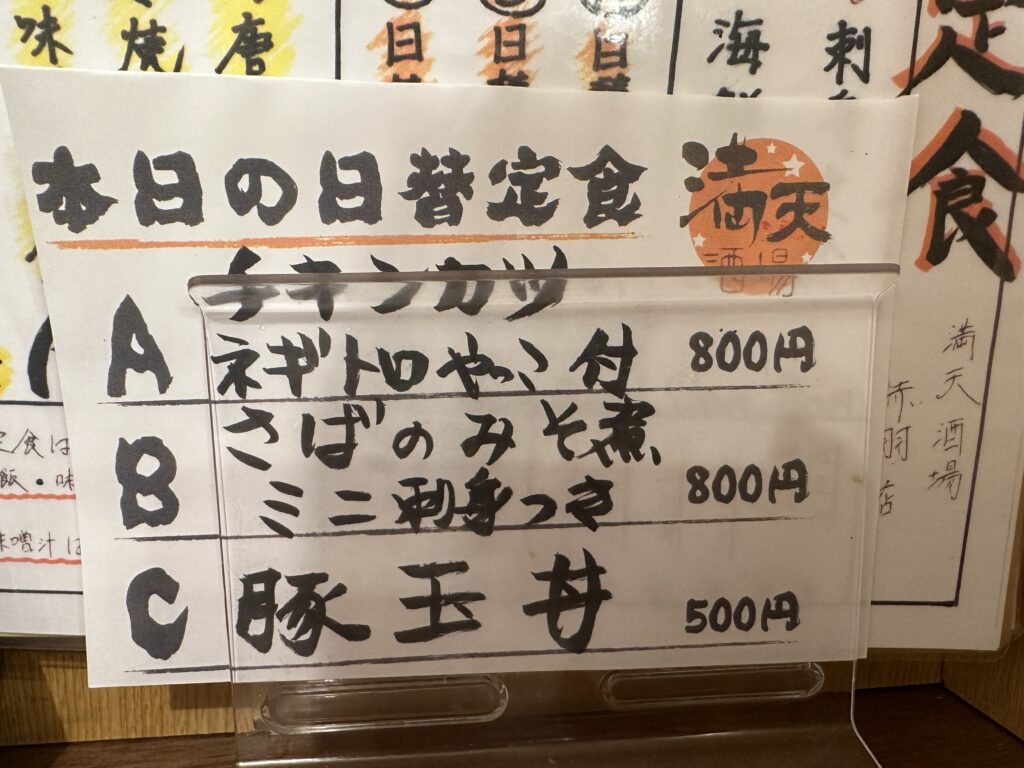 味
焼
唐
日替
日替
日替
海鮮
刺
定食
本日の日替定食
満天
酒場
A
チキンカツ
ネギトロやっこ付
800円
B
さばのみそ煮
ミニ刺身つき
800円
C
豚玉丼
500円
満天酒場
赤羽店
定食は
飯・味
味噌汁は